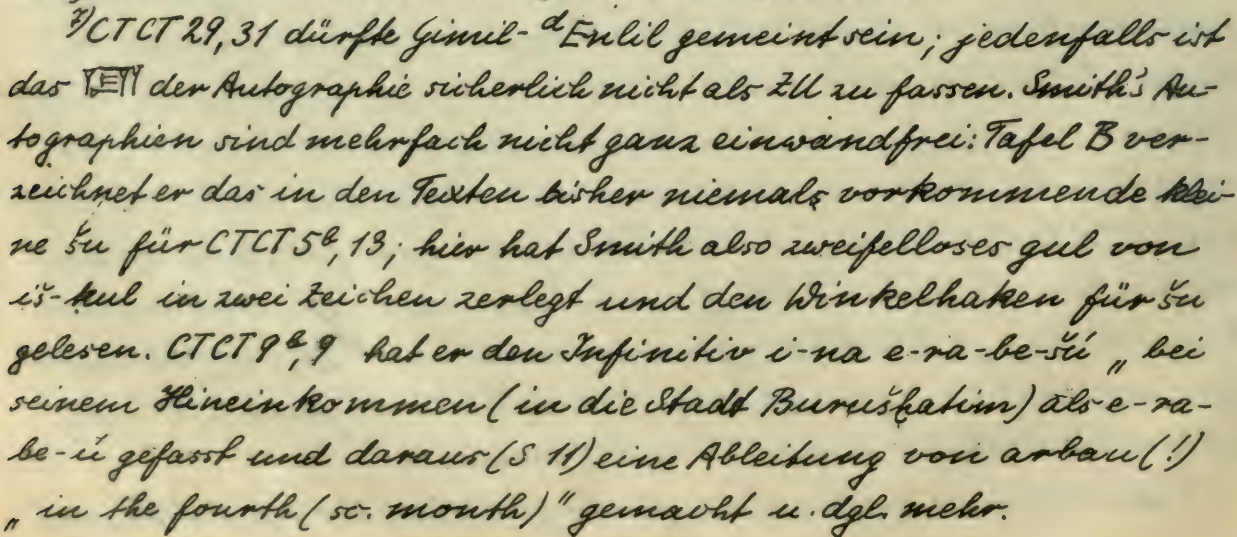 7) CTCT 29, 31 dürfte Gimil-ᵈEnlil gemeint sein; jedenfalls ist
das der Autographie sicherlich nicht als ZU zu fassen. Smith's Au-
tographien sind mehrfach nicht ganz einwandfrei: Tafel B ver-
zeichnet er das in den Texten bisher niemals vorkommende klei-
ne šu für CTCT 5ᵇ, 13; hier hat Smith also zweifelloses gul von
iš-kul in zwei Zeichen zerlegt und den Winkelhaken für šu
gelesen. CTCT 9ᵇ, 9 hat er den Infinitiv i-na e-ra-be-šú „bei
seinem Hineinkommen (in die Stadt Burušḫatim) als e-ra-
be-ú gefasst und daraus (S 11) eine Ableitung von arbau (!)
„in the fourth (sc. month)" gemacht u. dgl. mehr.